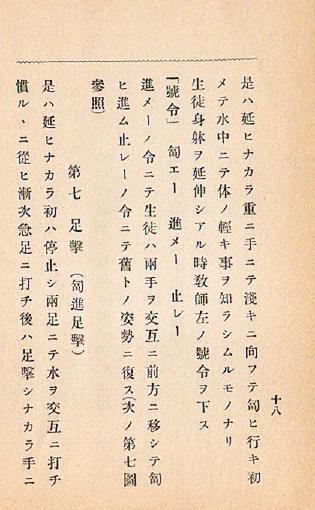 十八
是ハ延ヒナカラ重ニ手ニテ淺キニ向フテ匐ヒ行キ初
メテ水中ニテ体ノ輕キ事ヲ知ラシムルモノナリ
生徒身躰ヲ延伸シアル時敎師左ノ號令ヲ下ス
「號令」 匐エー 進メー 止レー
進メーノ令ニテ生徒ハ兩手ヲ交互ニ前方ニ移シテ匐
ヒ進ム止レーノ令ニテ舊トノ姿勢ニ復ス(次ノ第七圖
參照)
第七 足擊 (匐進足擊)
是ハ延ヒナカラ初ハ停止シ兩足ニテ水ヲ交互ニ打チ
慣ルヽニ從ヒ漸次急足ニ打チ後ハ足擊シナカラ手ニ